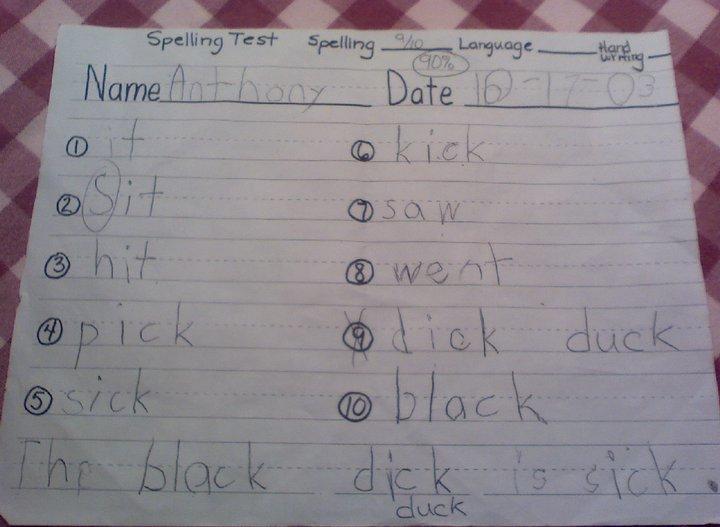 Spelling Test Spelling 9/10 Language Hand writing
90%
Name Anthony Date 10-17-03
1 it
2 Sit
3 hit
4 pick
5 sick
6 kick
7 saw
8 went
9 dick duck
10 black
The black dick is sick.
duck